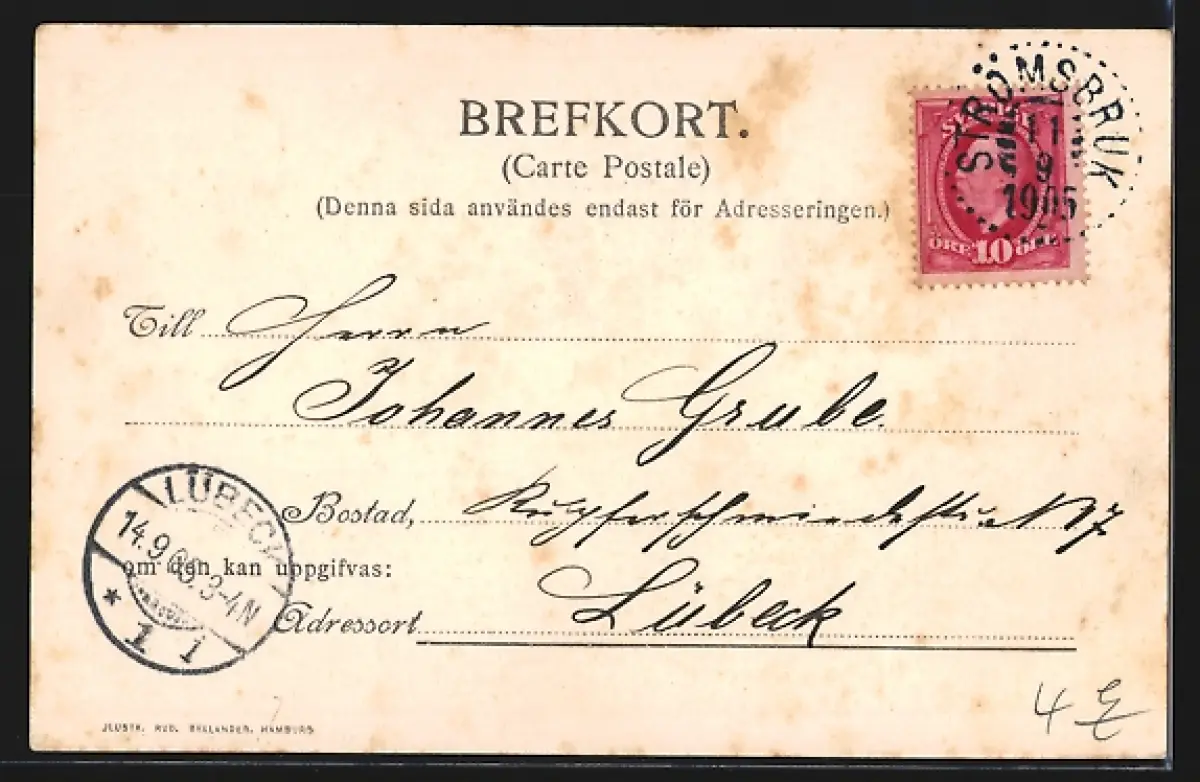 BREFKORT.
(Carte Postale)
(Denna sida användes endast för Adresseringen.)
STRÖMSBRUK
11
9
1905
ÖRE 10 ÖRE
Till Herrn
Johannes Grube.
Bostad, Kupferschmiedestr. N 7
om den kan uppgifvas:
Adressort Lübeck
LÜBECK
14.9.05.3-4N
* 1 1
JLUSTR. RUD. HAMBURG
4